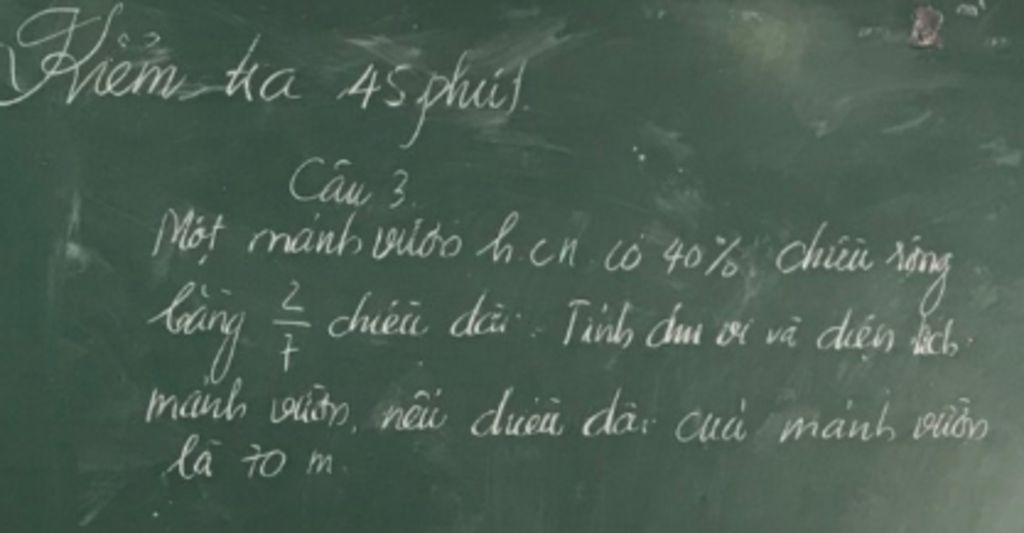 Kiểm tra 45 phút.
Câu 3.
Một mảnh vườn h.cn có 40% chiều rộng
bằng 2/7 chiều dài. Tính chu vi và diện tích
mảnh vườn, nếu chiều dài của mảnh vườn
là 70 m.